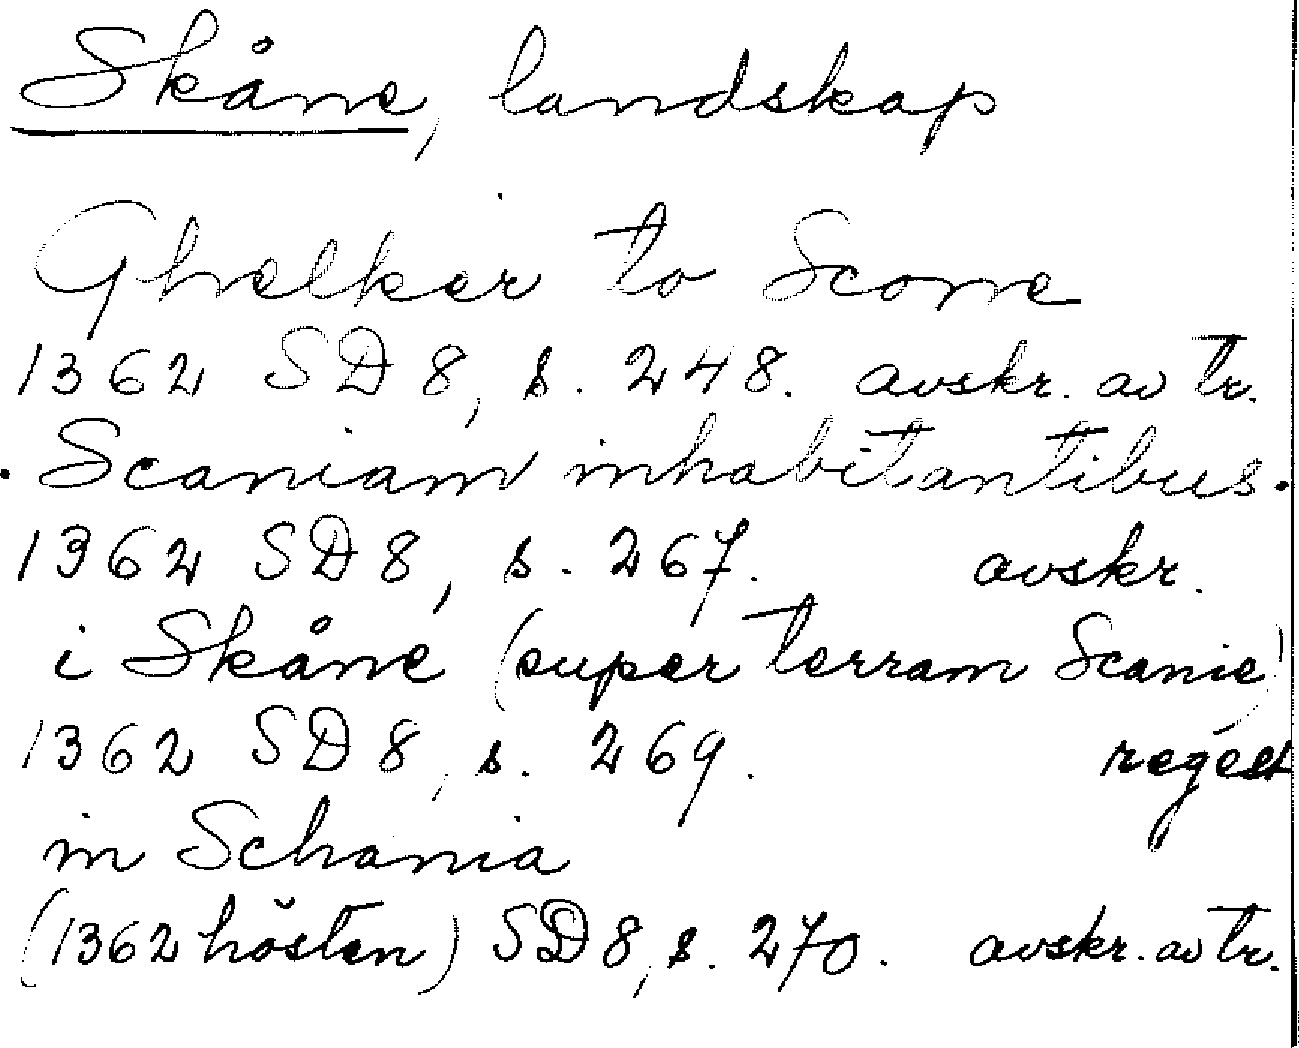 Skåne, landskap
Ghelker to Scone
1362 SD 8, s. 248. avskr. av tr.
. Scaniam inhabitantibus.
1362 SD 8, s. 267. avskr.
i Skåne (super terram Scanie)
1362 SD 8, s. 269. regest
in Schania
(1362 hösten) SD 8, s. 270. avskr. av tr.